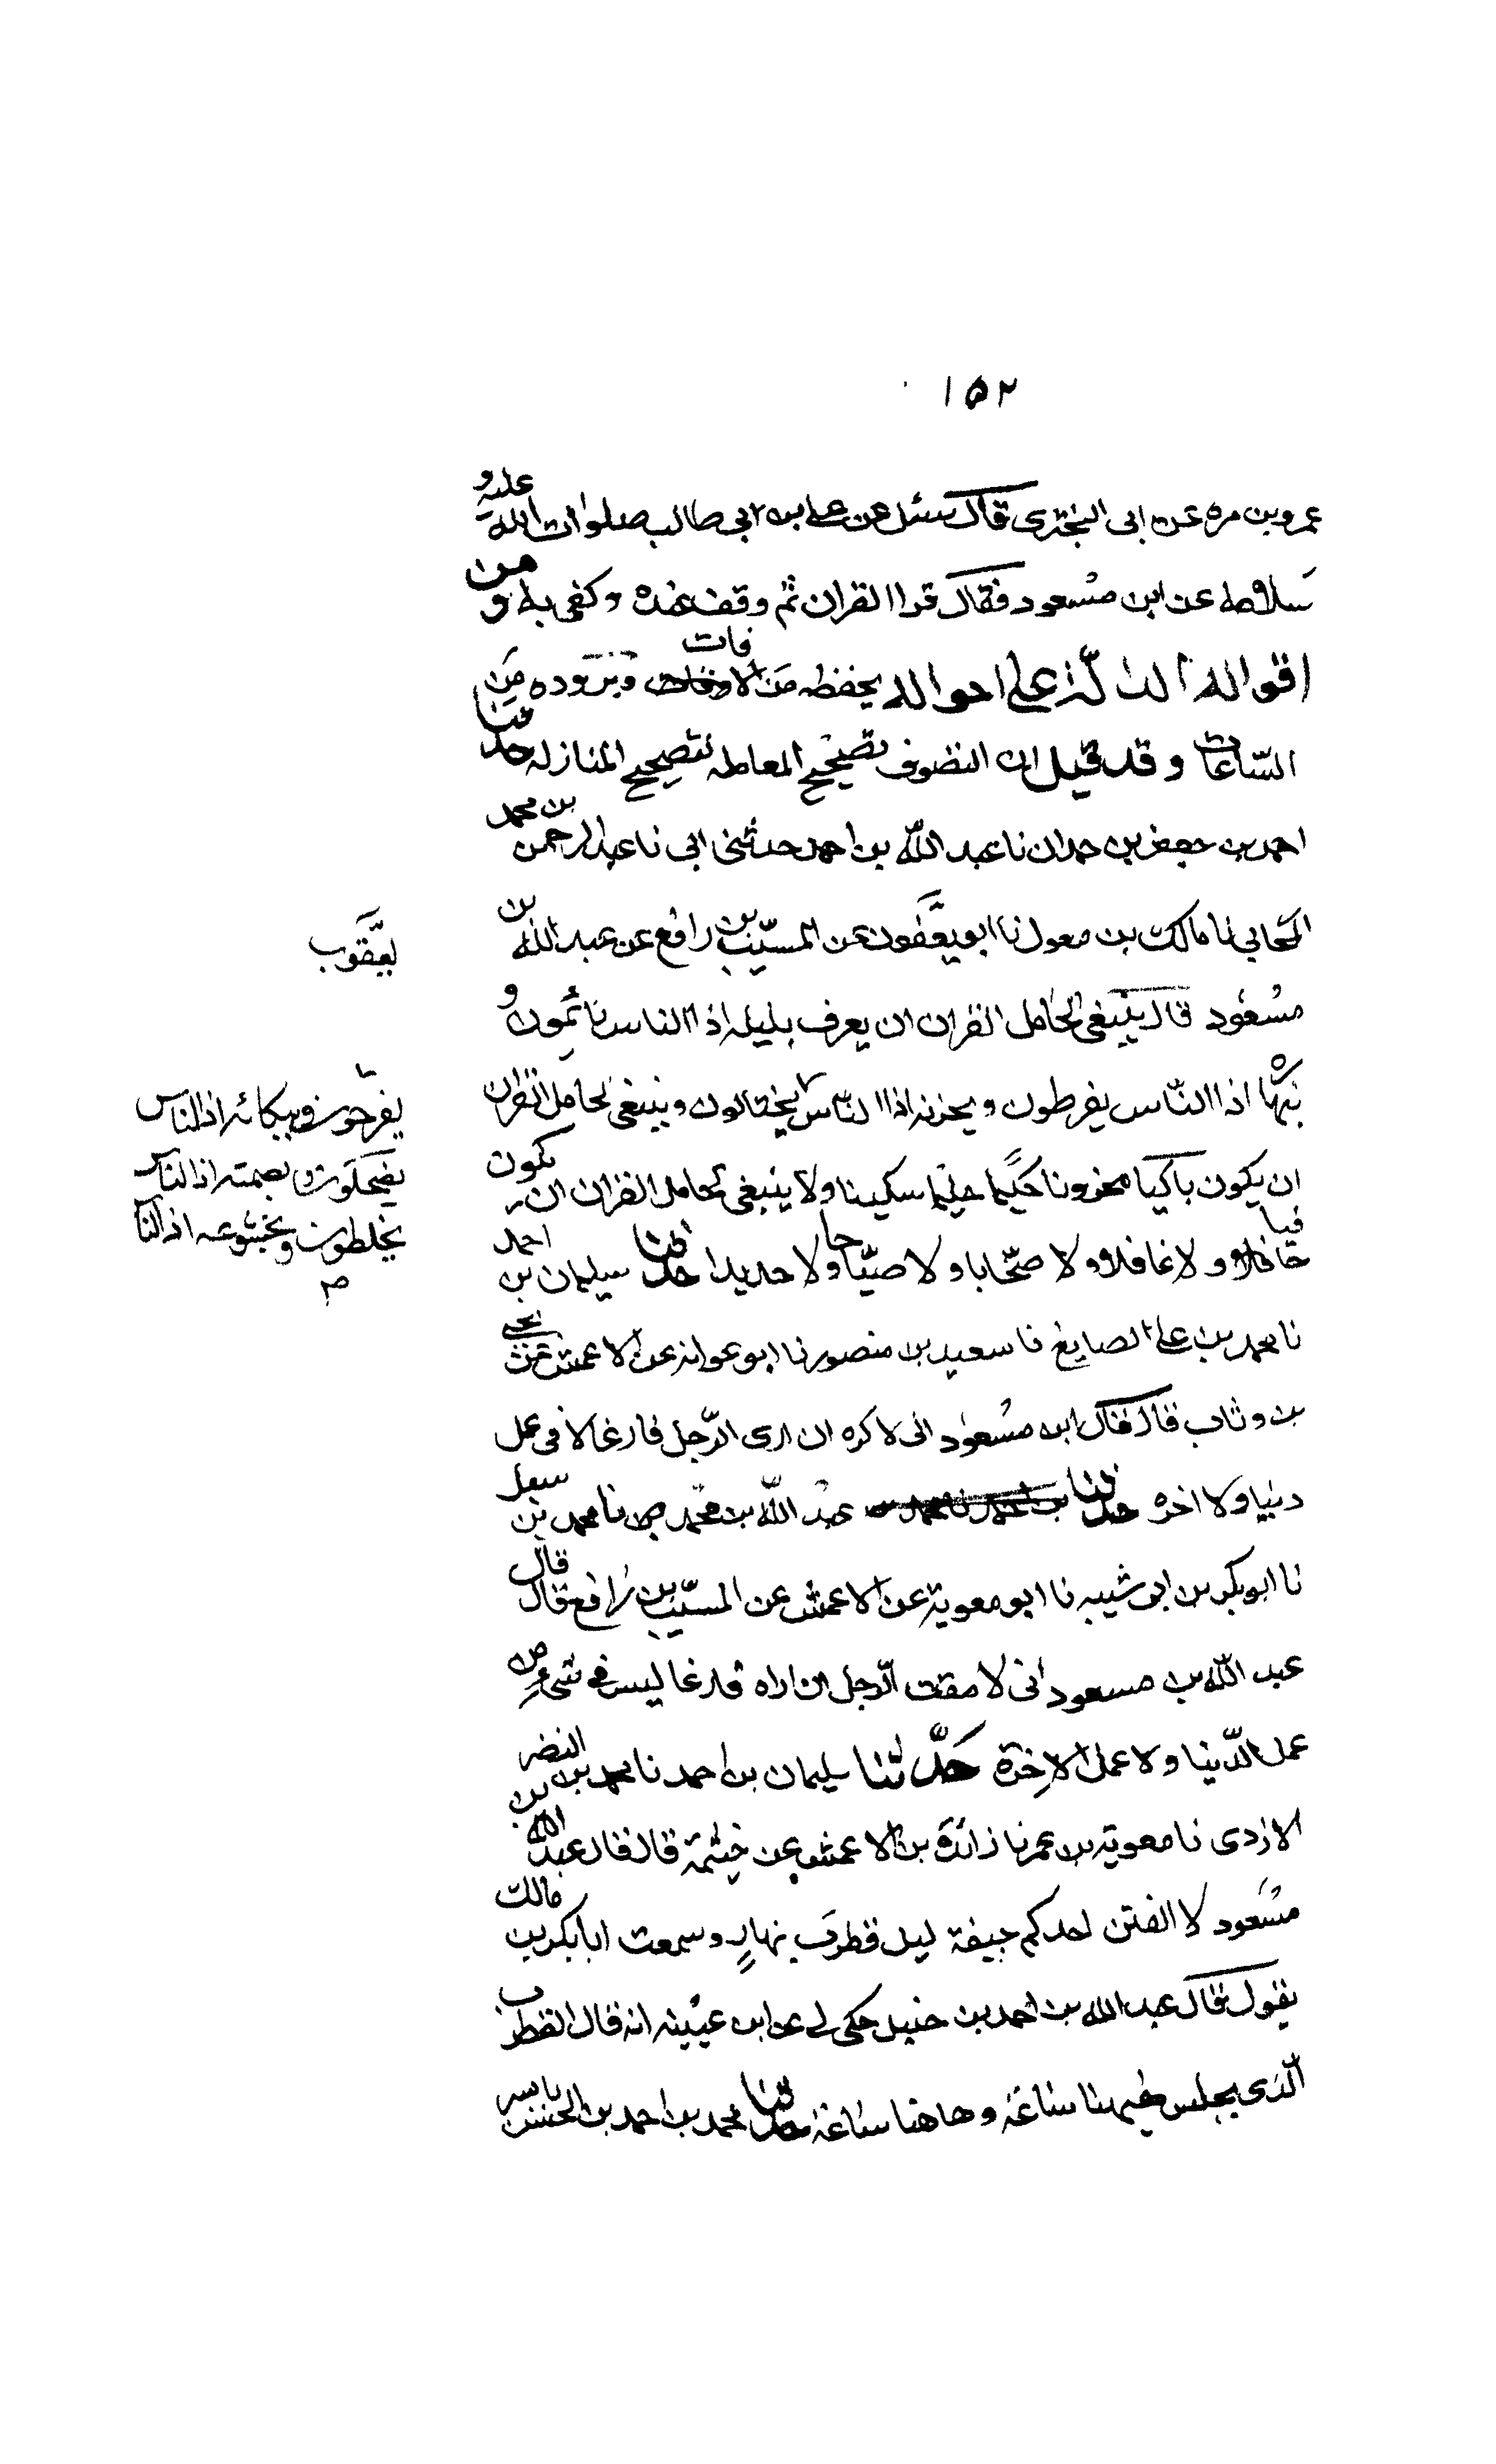 ١٥٢
عمرو بن مره عن ابى البخترى قال سئل عن على بن ابي طالب صلوات الله عليه و
سلامه عن ابن مسعود فقال قرا القران ثم وقف عنده وكفى به و من
اقواله الدالة على احواله بحفظه من الافات وتزوده من
الساعات وقد قيل ان التصوف تصحيح المعامله لتصحيح المنازله حدثنا
احمد بن جعفر بن حمدان نا عبد الله بن احمد حدثنى ابى نا عبد الرحمن بن محمد
المحابي نا مالك بن معول نا ابو يعفون عن المسيب بن رافع عن عبد الله بن
يعقوب
مسعود قال ينبغى لحامل القران ان يعرف بليله اذا الناس نائمون و
نهاره اذا الناس يفرطون و بحزنه اذا الناس يختالون و ينبغى لحامل القران
يفرحون و ببكائه اذ الناس
يضحكون و بصمته اذا الناس
يخلطون و بخشوعه اذ النا
ان يكون باكيا محزونا حكيما حليما سكينا ولا ينبغى لحامل القران ان يكون
جافيا ولا غافلا ولا صخابا ولا صياحا ولا حديدا حدثنا سليمان بن احمد
نا محمد بن على الصايغ نا سعيد بن منصور نا ابو عوانه عن الاعمش عن يحيى
بن وثاب قال قال ابن مسعود انى لاكره ان ارى الرجل فارغا لا فى عمل
دنيا ولا اخره حدثنا عبد الله بن محمد نا محمد بن سهل
نا ابو بكر بن ابى شيبه نا ابو معوية عن الاعمش عن المسيب بن رافع قال قال
عبد الله بن مسعود انى لامقت الرجل ان اراه فارغا ليس فى شئ من
عمل الدنيا ولا عمل الاخرة حدثنا سليمان بن احمد نا محمد بن النضر
الازدى نا معوية بن عمر نا زائدة بن الاعمش عن خيثمة قال قال عبد الله بن
مسعود لا الفين احدكم جيفة ليل قطرب نهار وسمعت ابا بكر بن مالك
يقول قال عبد الله بن احمد بن حنبل حكى لى عن ابن عيينه انه قال القطرب
الذى يجلس هيهنا ساعة وهاهنا ساعة حدثنا محمد بن احمد بن الحسن